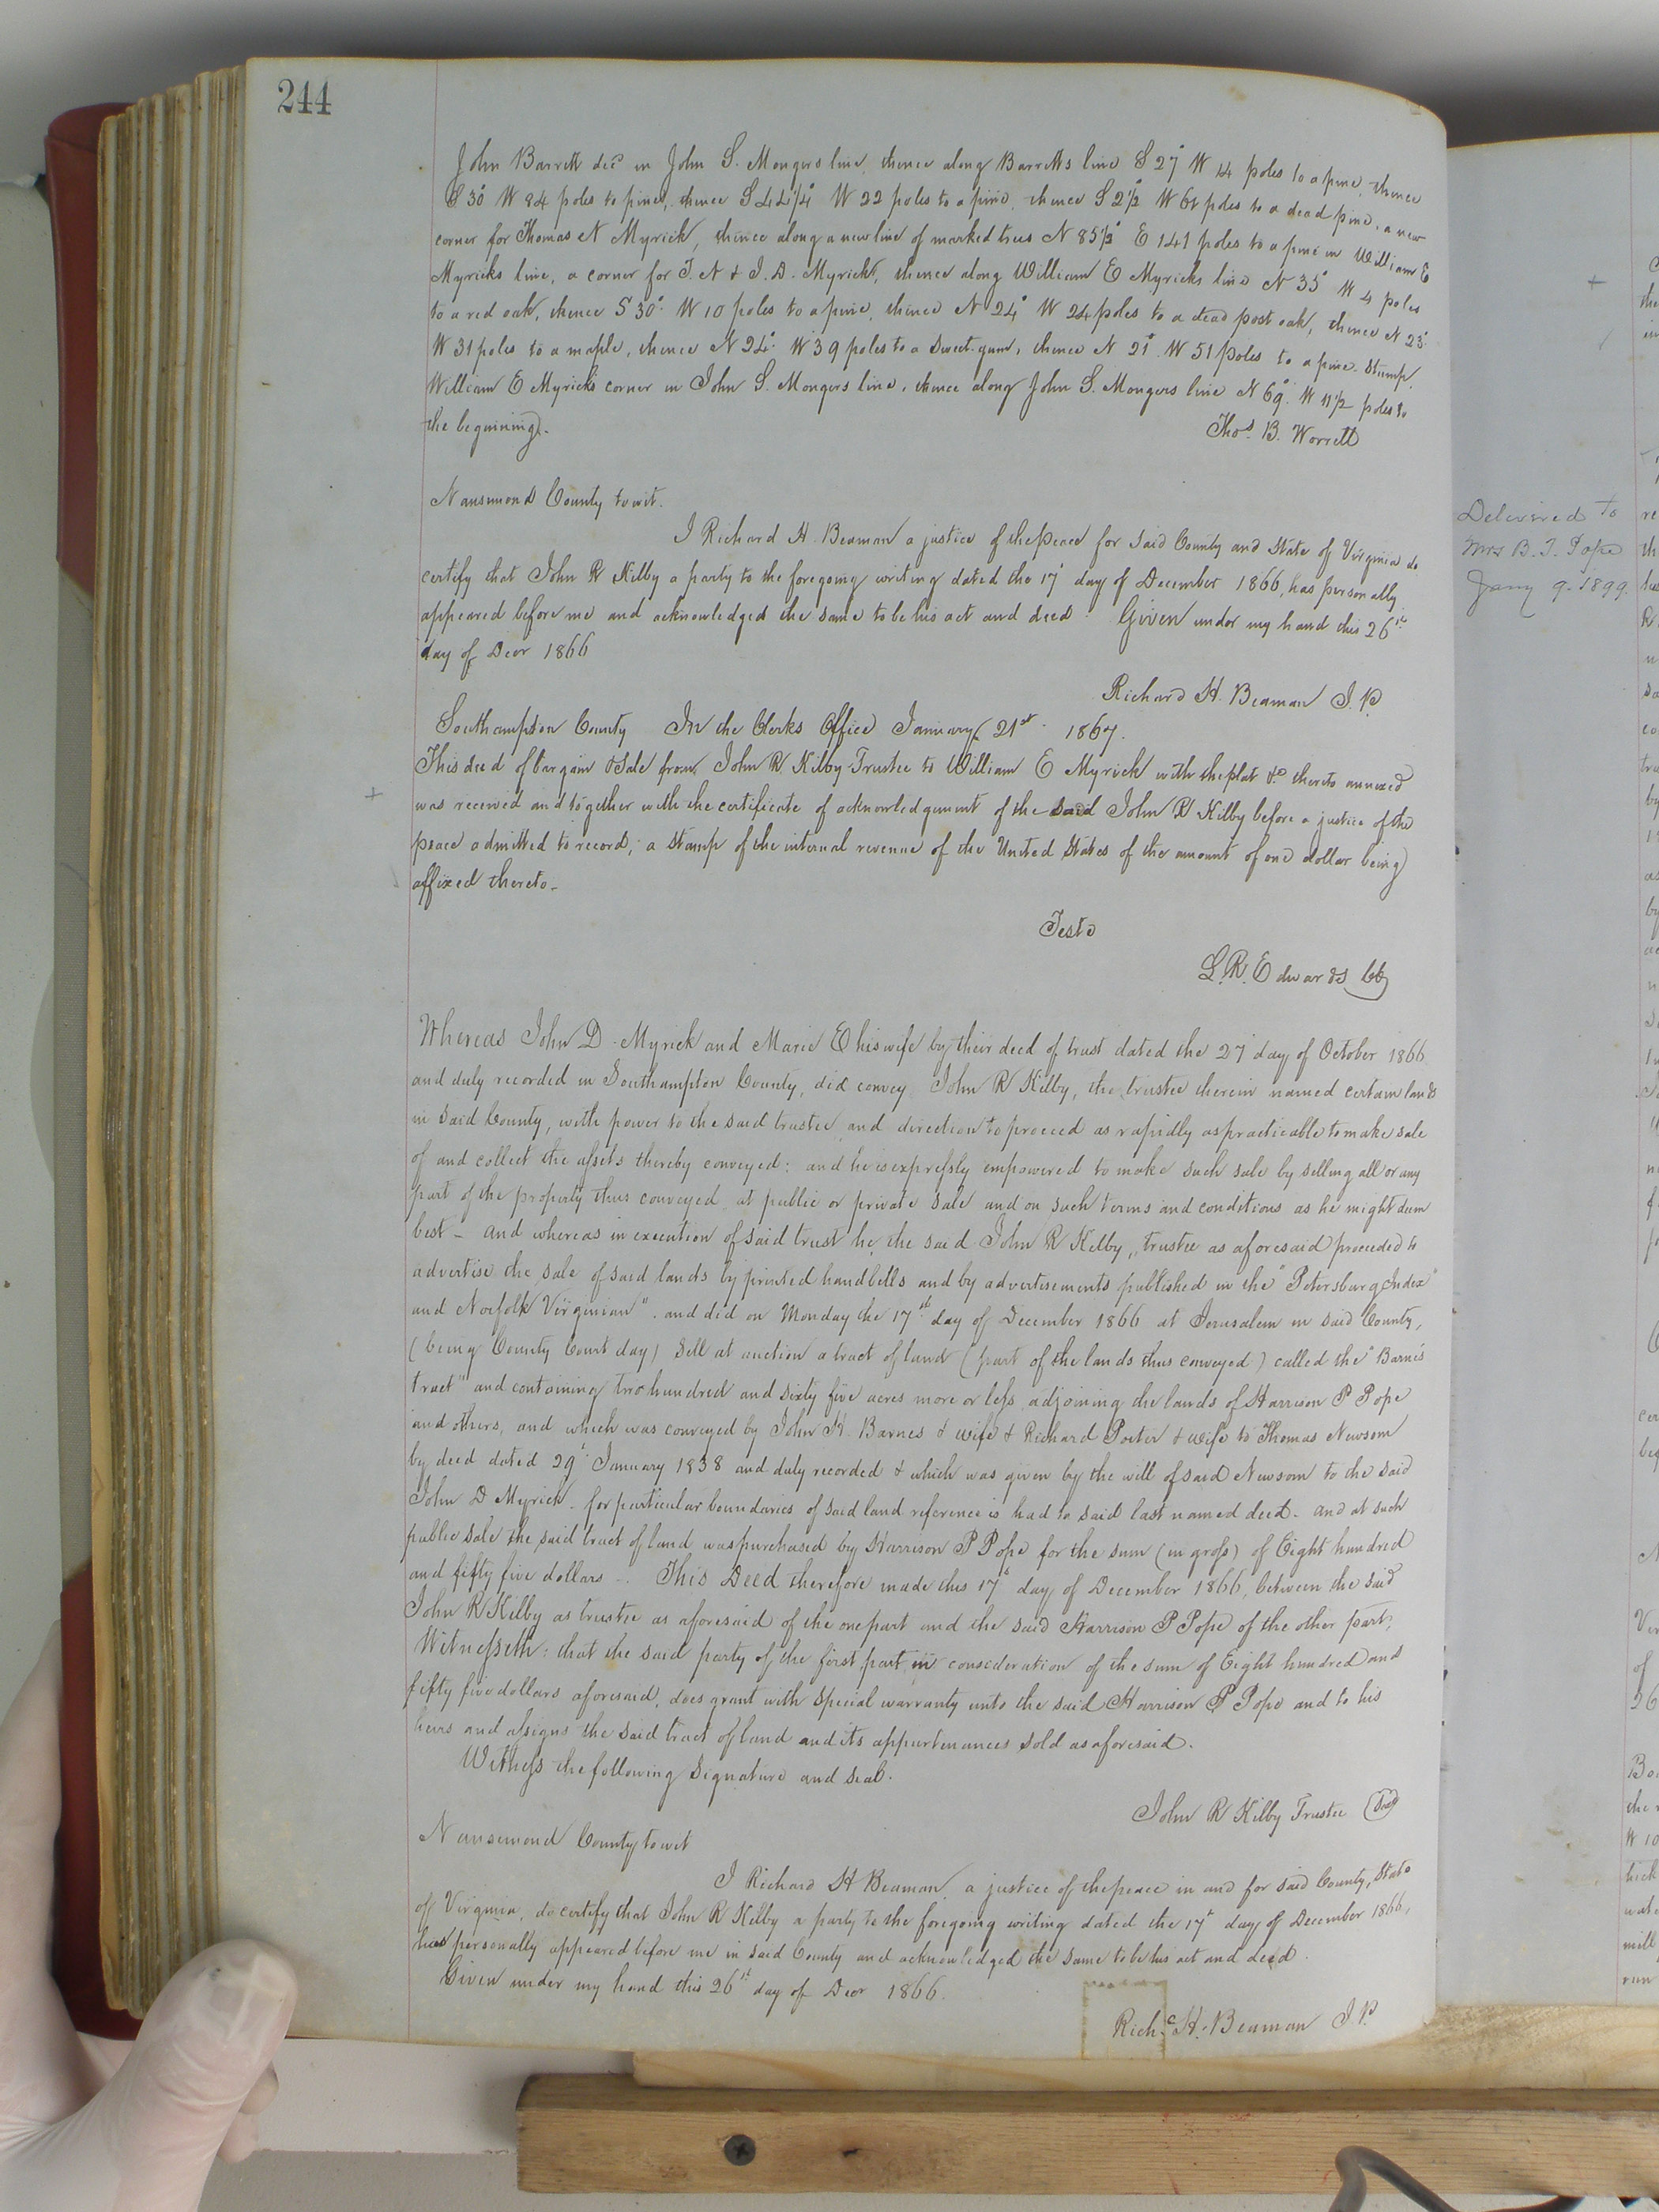 244
John Barrett decd in John S. Mongers line, thence along Barretts line S 27° W 14 poles to a pine, thence
S 30° W 84 poles to pine, thence S 44 1/4° W 22 poles to a pine, thence S 2 1/2° W 61 poles to a dead pine, a new
corner for Thomas N Myrick, thence along a new line of marked trees N 85 1/2° E 141 poles to a pine in William E
Myricks line, a corner for T. N & J. D. Myrick, thence along William E Myricks line N 35° W 4 poles
to a red oak, thence S 30° W 10 poles to a pine, thence N 24° W 24 poles to a dead post oak, thence N 23°
W 31 poles to a maple, thence N 24° W 39 poles to a sweet gum, thence N 21° W 51 poles to a pine stump,
William E Myricks corner in John S. Mongers line, thence along John S. Mongers line N 69° W 11 1/2 poles to
the beginning.
Thos. B. Worrell
Nansemond County to wit.
I Richard H. Beaman a justice of the peace for said County and State of Virginia do
certify that John R Kilby a party to the foregoing writing dated the 17th day of December 1866, has personally
appeared before me and acknowledged the same to be his act and deed. Given under my hand this 26th
day of Decr 1866
Richard H. Beaman J. P.
Southampton County In the Clerks Office January 21st 1867.
This deed of bargain & Sale from John R Kilby Trustee to William E Myrick with the plat &c thereto annexed
was received and together with the certificate of acknowledgment of the said John R Kilby before a justice of the
peace admitted to record, a stamp of the internal revenue of the United States of the amount of one dollar being
affixed thereto_
Teste
L. R. Edwards CC
Whereas John D. Myrick and Marie E his wife by their deed of trust dated the 27 day of October 1866
and duly recorded in Southampton County, did convey John R Kilby, the trustee therein named certain lands
in said County, with power to the said trustee and direction to proceed as rapidly as practicable to make sale
of and collect the assets thereby conveyed: and he is expressly empowered to make such sale by selling all or any
part of the property thus conveyed at public or private sale and on such terms and conditions as he might deem
best _ and whereas in execution of said trust he, the said John R Kilby, trustee as aforesaid proceeded to
advertise the sale of said lands by printed handbills and by advertisements published in the "Petersburg Index"
and Norfolk Virginian". and did on Monday the 17th day of December 1866 at Jerusalem in said County,
(being County Court day) Sell at auction a tract of land (part of the lands thus conveyed) called the "Barnes
tract" and containing two hundred and sixty five acres more or less adjoining the lands of Harrison P Pope
and others, and which was conveyed by John H. Barnes & wife & Richard Porter & wife to Thomas Newsom
by deed dated 29th January 1838 and duly recorded & which was given by the will of said Newsom to the said
John D Myrick. for particular boundaries of said land reference is had to said last named deed. and at such
public sale the said tract of land was purchased by Harrison P Pope for the sum (in gross) of Eight hundred
and fifty five dollars _ This Deed therefore made this 17th day of December 1866, between the said
John R Kilby as trustee as aforesaid of the one part and the said Harrison P Pope of the other part,
Witnesseth: that the said party of the first part in consideration of the sum of Eight hundred and
fifty five dollars aforesaid, does grant with special warranty unto the said Harrison P Pope and to his
heirs and assigns the said tract of land and its appurtenances sold as aforesaid.
Witness the following signature and seal.
John R Kilby Trustee (Seal)
Nansemond County to wit
I Richard H Beaman, a justice of the peace in and for said County, State
of Virginia, do certify that John R Kilby a party to the foregoing writing dated the 17th day of December 1866,
has personally appeared before me in said County and acknowledged the same to be his act and deed.
Given under my hand this 26th day of Decr 1866.
Richd H. Beaman J. P.
Delivered to
Mrs B. T. Pope
Jany 9- 1899.